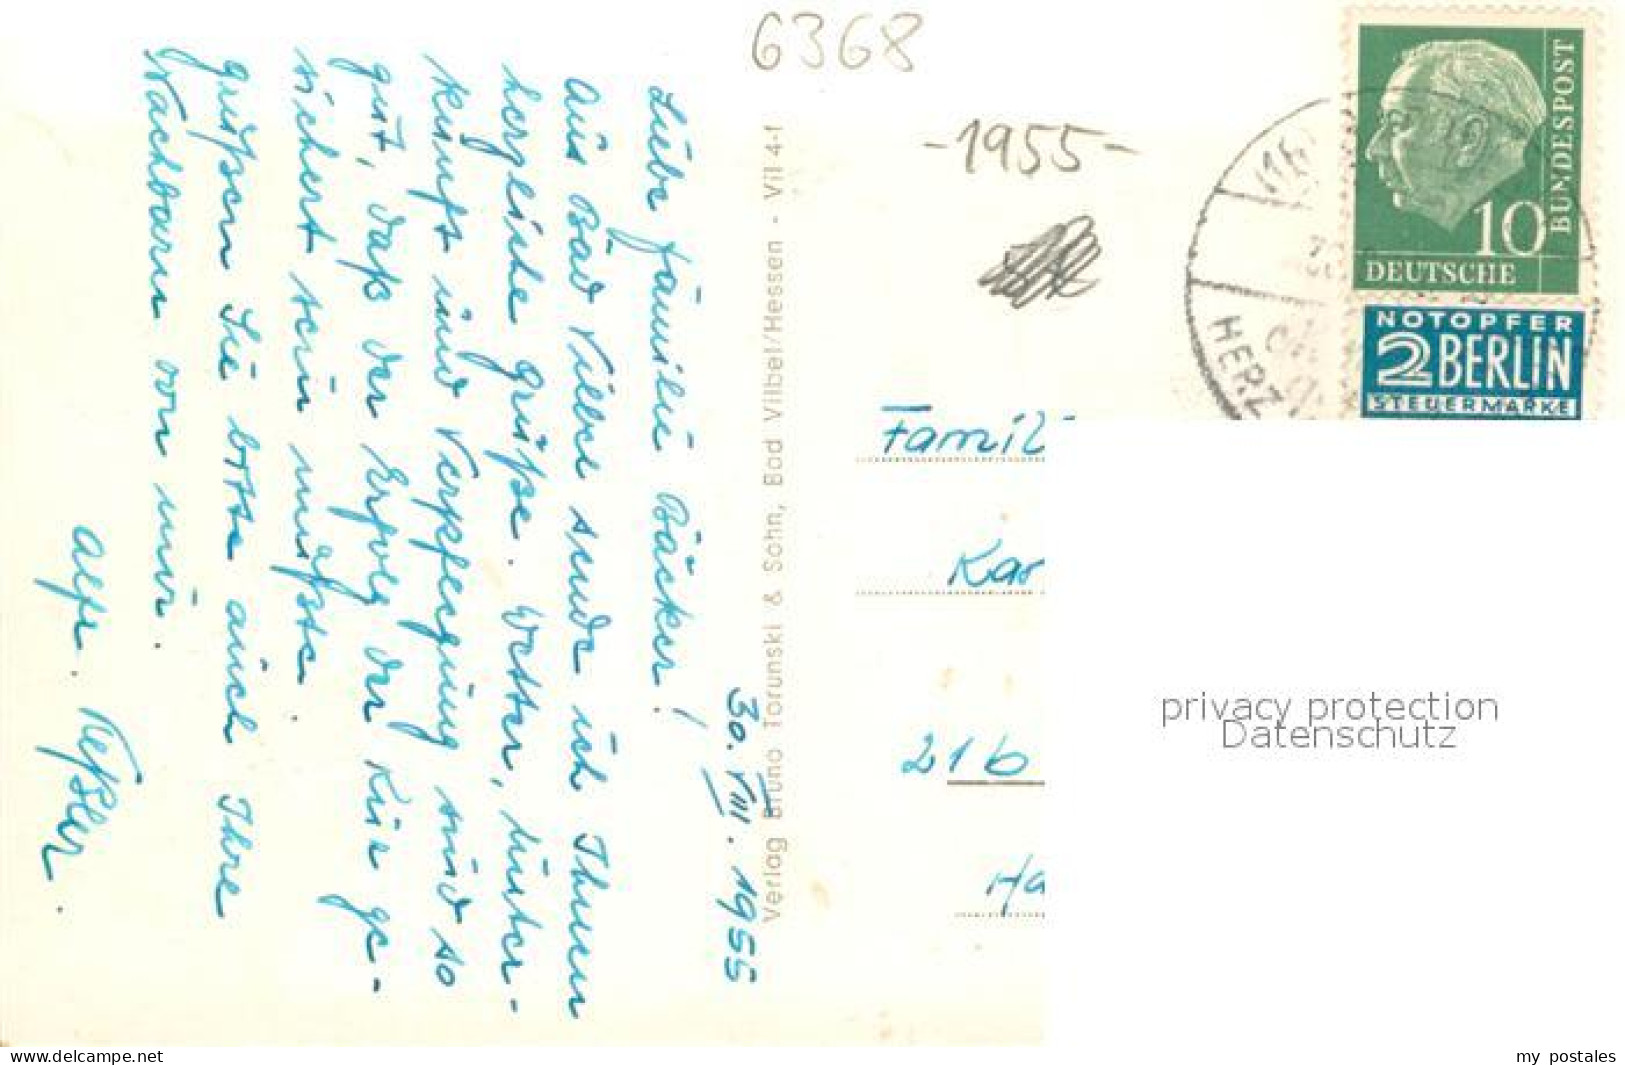 6368
-1955-
DEUTSCHE
BUNDESPOST
10
NOTOPFER
2 BERLIN
STEUERMARKE
HERZ
30. VIII. 1955
Liebe Familie Bäcker!
Aus Bad Vilbel sende ich Ihnen
herzliche Grüße. Wetter, Unter-
kunft und Verpflegung sind so
gut, daß der Erfolg der Kur ge-
sichert sein müsste.
Grüßen Sie bitte auch Ihre
Nachbarn von mir.
Keßler.
Verlag Bruno Torunski & Sohn, Bad Vilbel/Hessen - Vil 4-f
Famil
Kar
21b
Ha
privacy protection
Datenschutz
www.delcampe.net
my postales